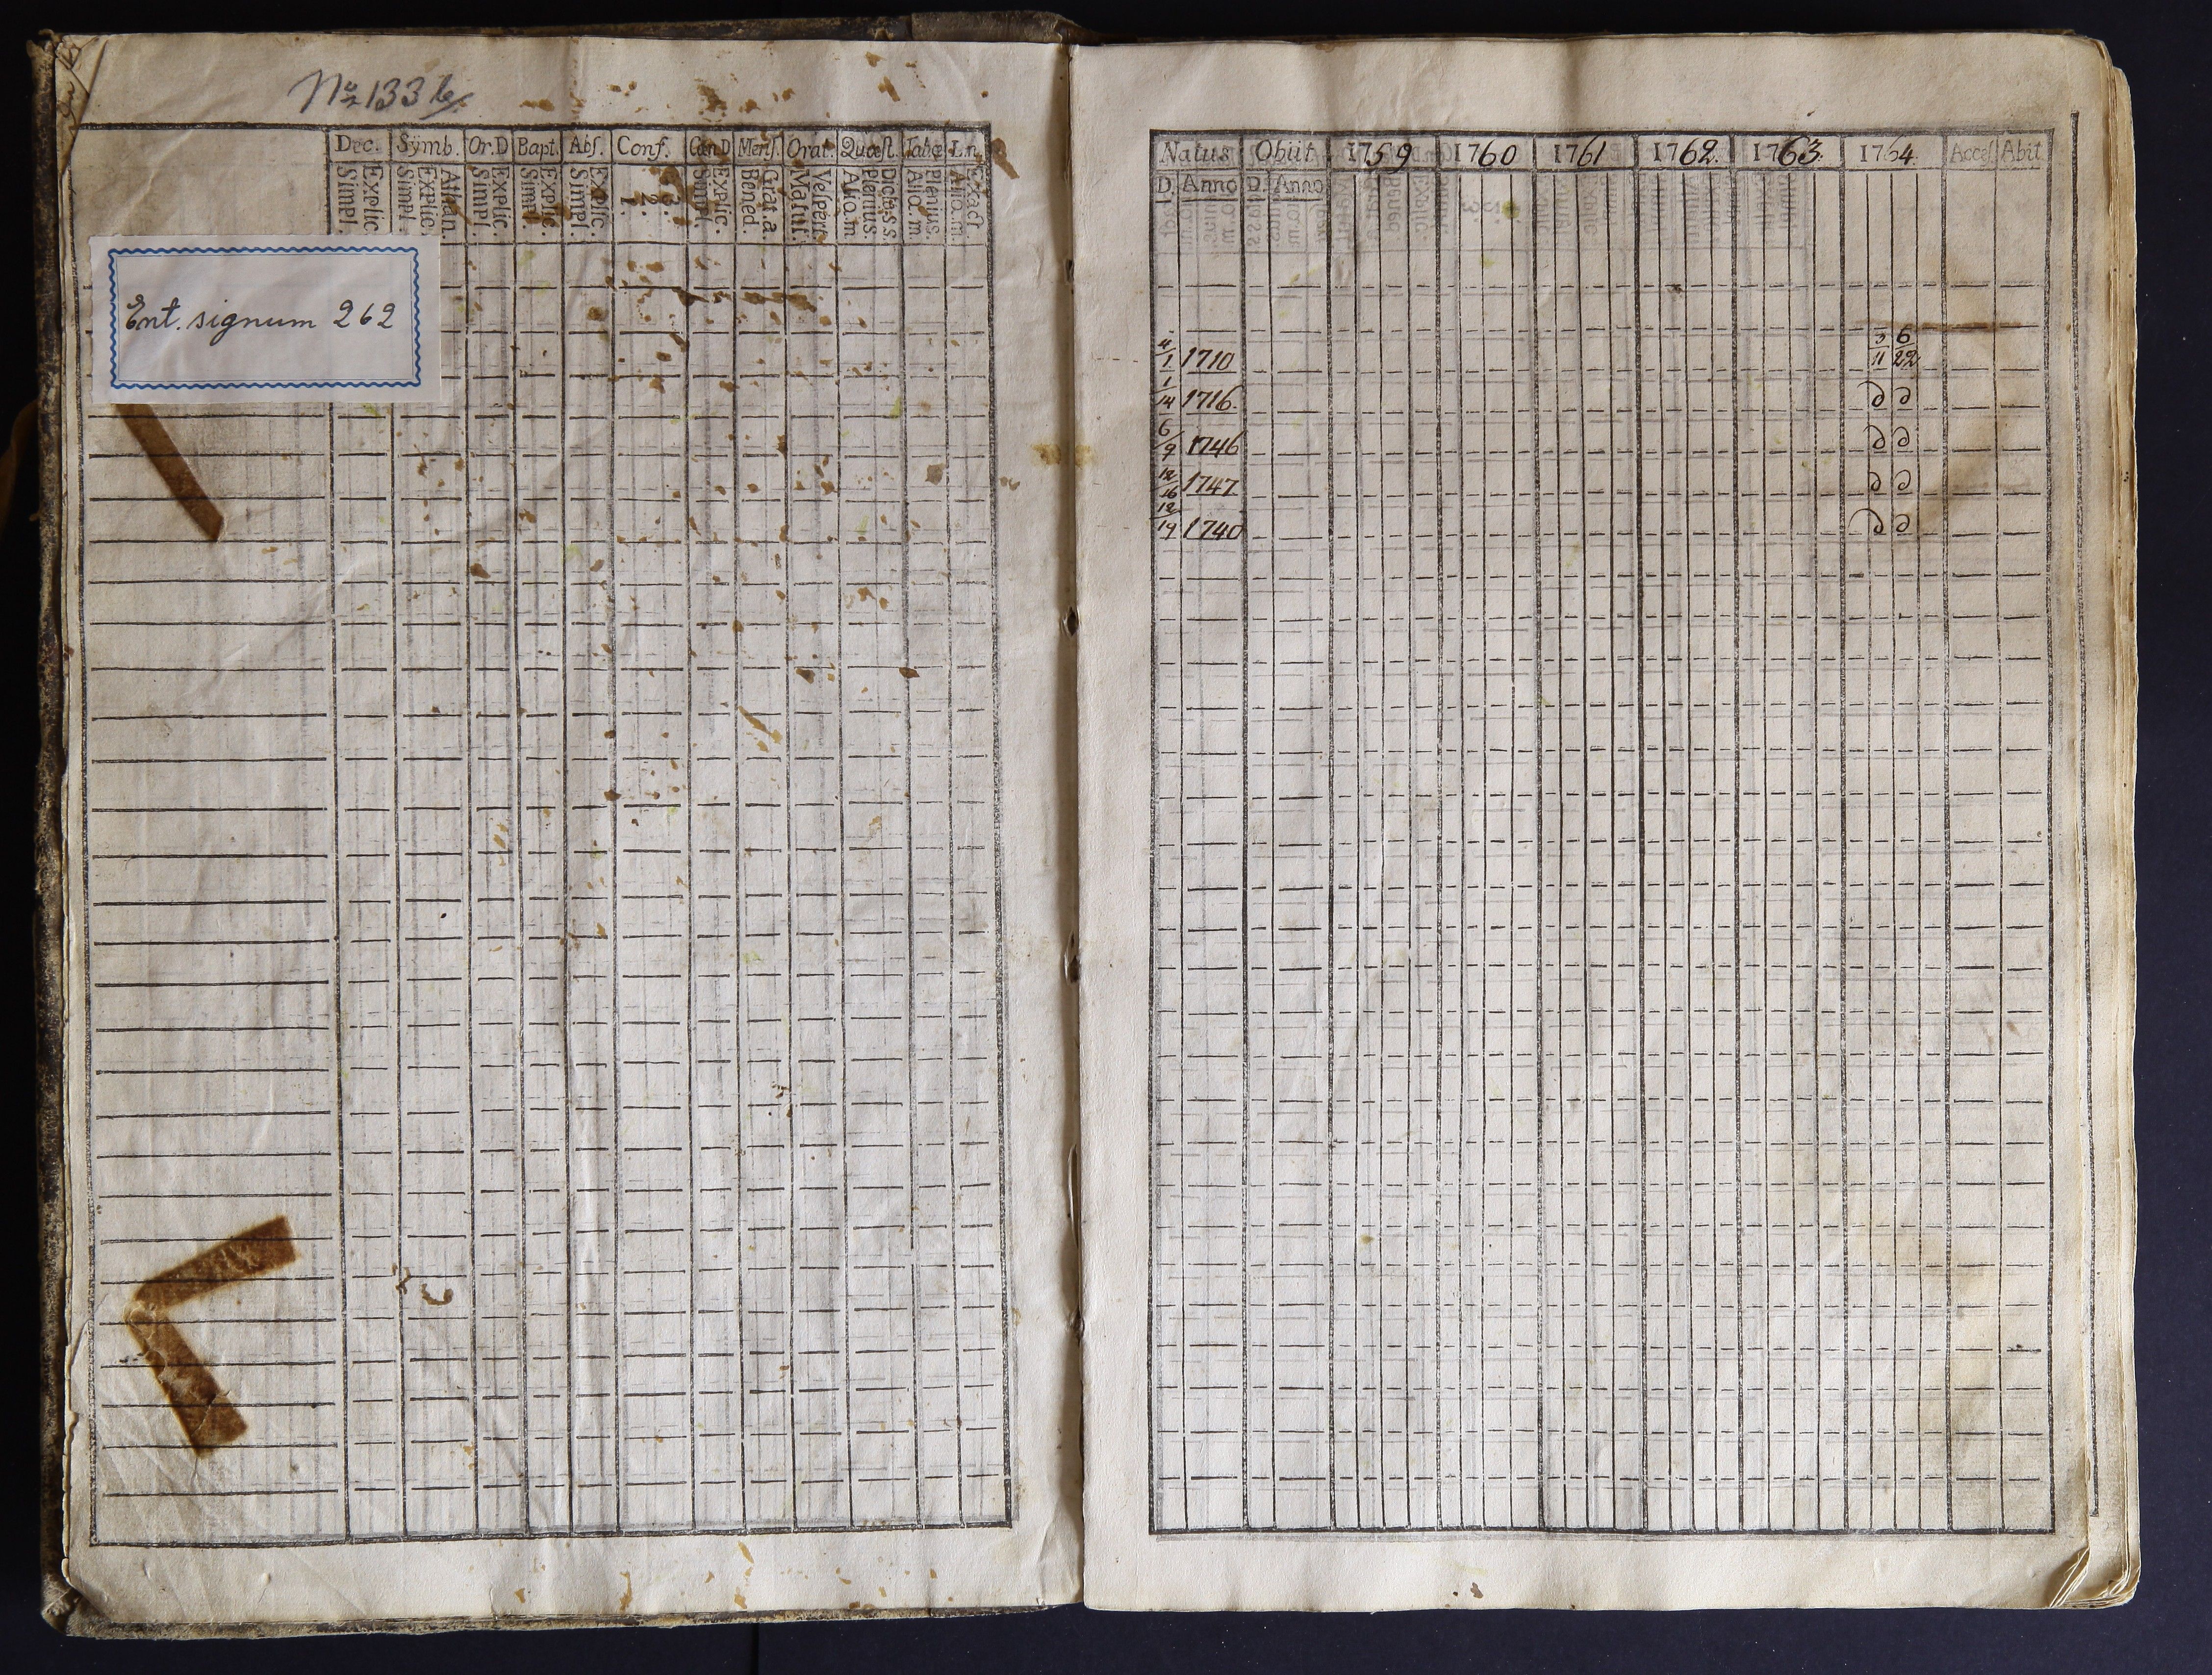 No 133 b
Dec. Symb. Or.D Bapt. Abs. Conf. Cæn D Mens. Orat. Quæst. Tabæ I.n.
Explic. Simpl. Athan. Explic. Simpl. Explic. Simpl. Explic. Simpl. Explic. Simpl. 3. 2. 1. Explic. Simpl. Grat. a. Bened. Vespert. Matut. Dictas s. Plenius. Aliq. m. Plenius. Aliq. m. Exact. Aliq. m.
Ent. signum 262
Natus Obiit 1759 1760 1761 1762. 1763. 1764. Acces. Abit
D. Anno D. Anno
4/1 1710 3/11 6/22
1/14 1716. d d
6/9 1746 d d
12/16 1747 d d
12/19 1740 d d